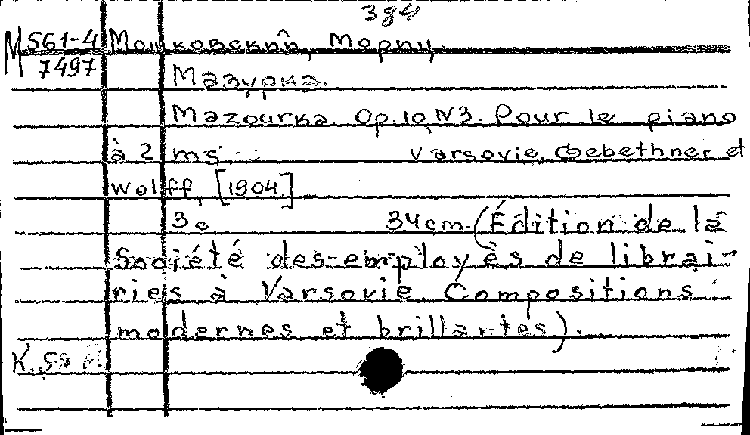 384
М 561-4 Мошковский, Мориц
7497
Мазурка.
Mazourka. Op.10, N3. Pour le piano
à 2 ms. Varsovie, Gebethner et
Wolff, [1904]
3 с 34 cm. (Édition de la
Société des employès de librai-
ries à Varsovie. Compositions
modernes et brillantes).